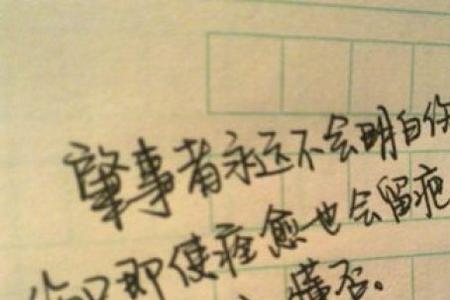 肇事者永远不会明白你
伤口即使痊愈也会留疤
懂否.